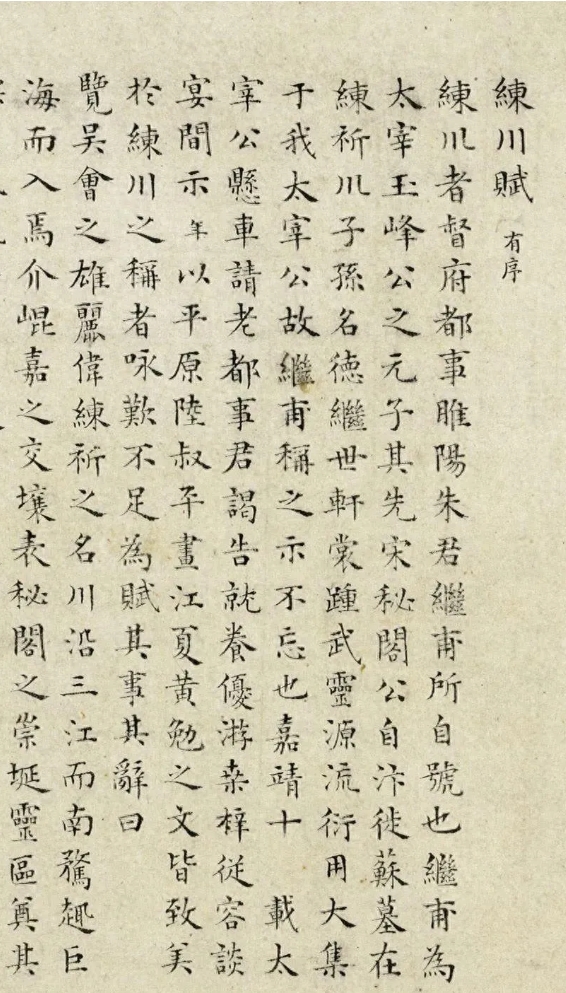 練川賦 有序
練川者督府都事睢陽朱君繼甫所自號也繼甫為
太宰玉峰公之元子其先宋秘閣公自汴徙蘇墓在
練祈川子孫名德繼世軒裳踵武靈源流衍用大集
于我太宰公故繼甫稱之示不忘也嘉靖十 載太
宰公懸車請老都事君謁告就養優游桒梓從容談
宴間示年以平原陸叔平畫江夏黃勉之文皆致美
於練川之稱者咏歎不足為賦其事其辭曰
覽吳會之雄麗偉練祈之名川沿三江而南騖趣巨
海而入焉介崐嘉之交壤表秘閣之崇埏靈區奠其